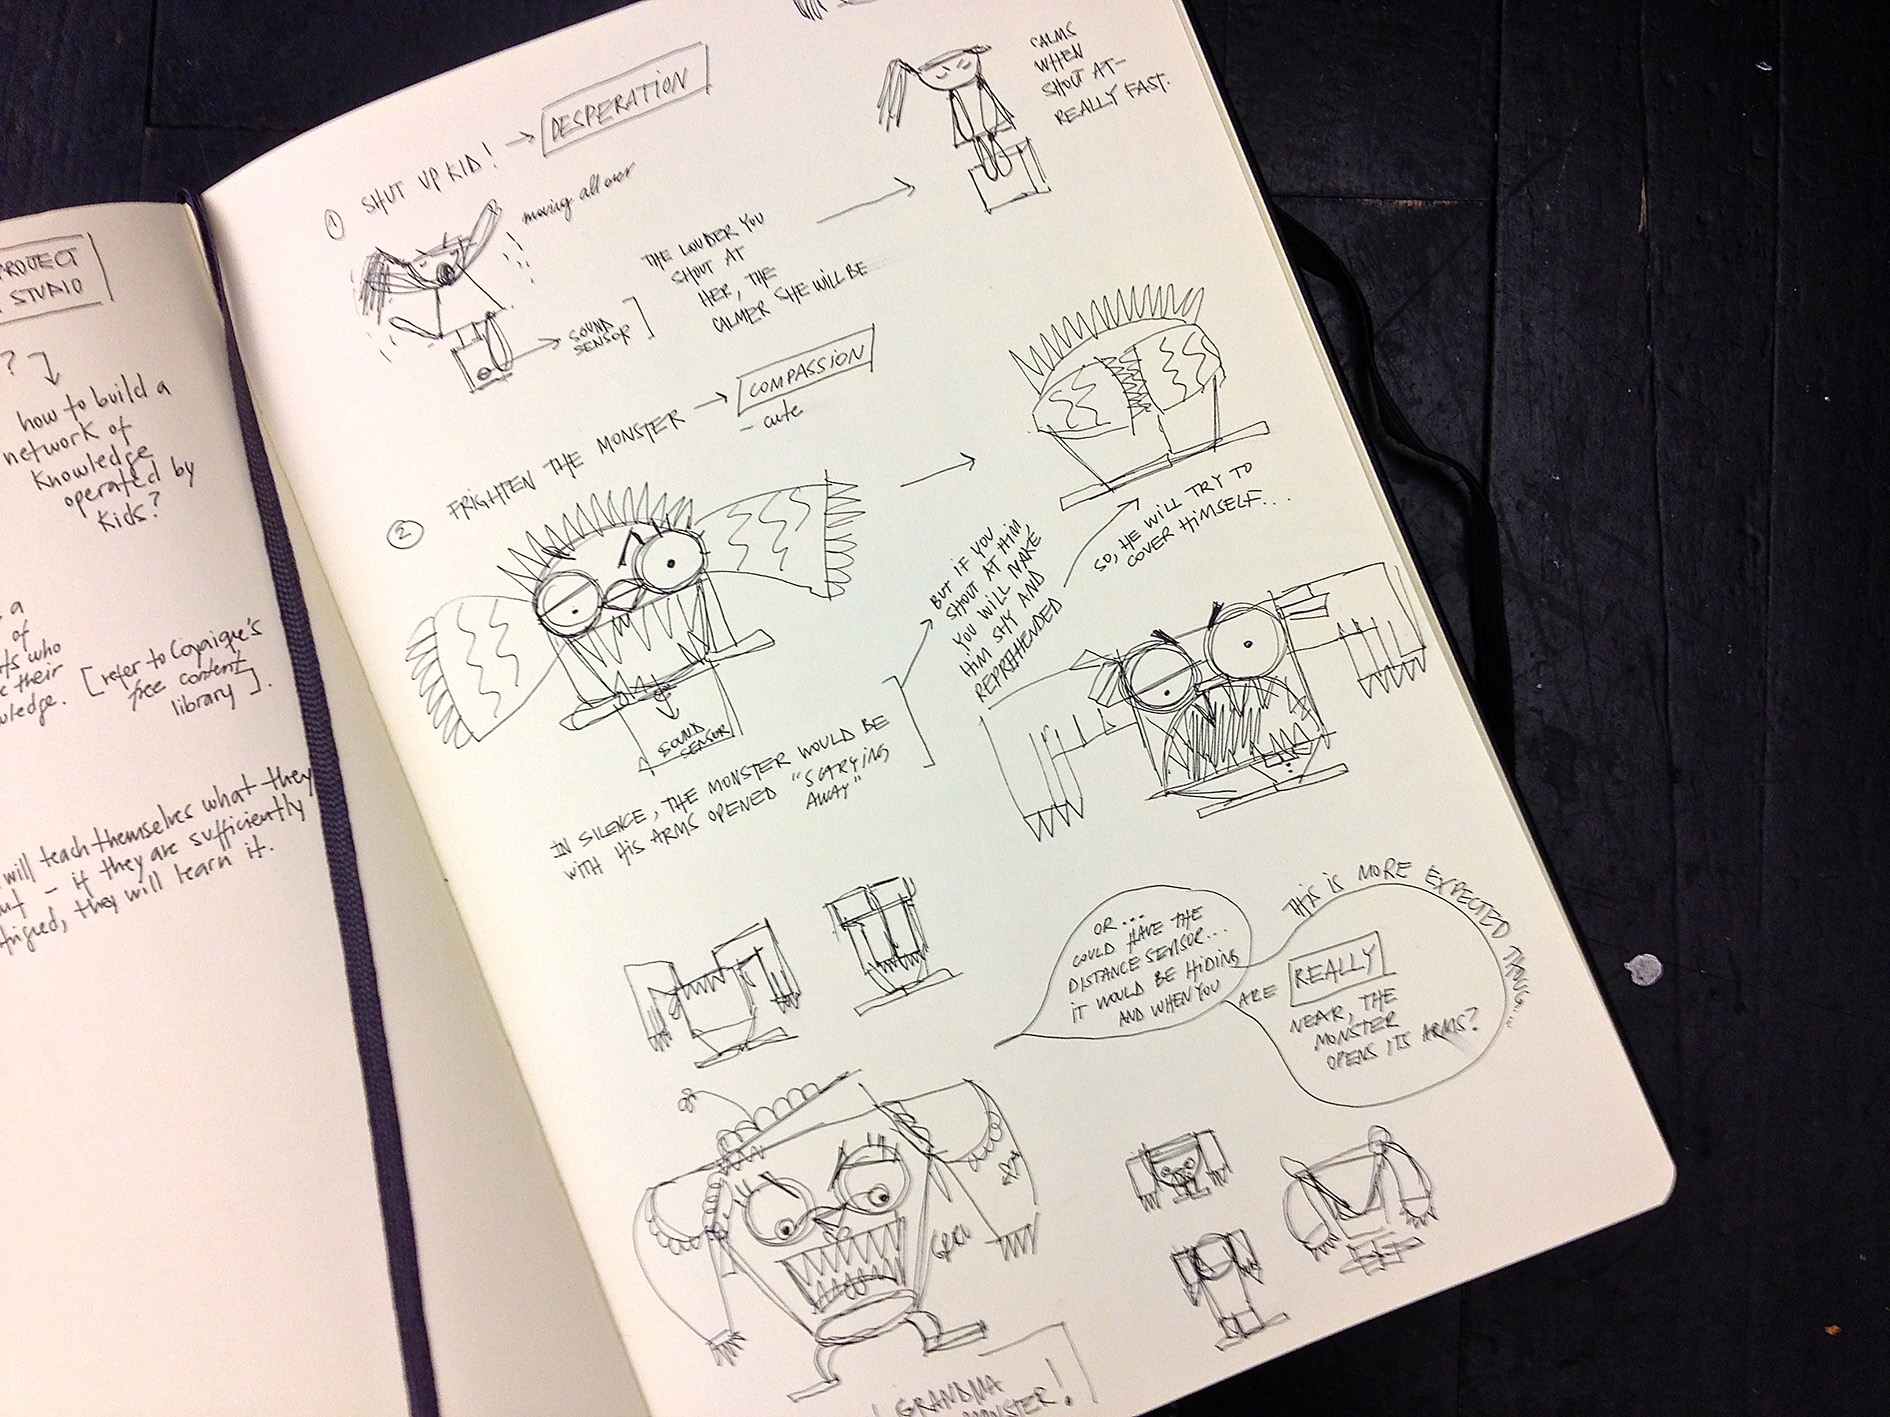 PROJECT
STUDIO
?
how to build a
network of
knowledge
operated by
kids?
a
of
who
their
[refer to
free content
library].
will teach themselves what they
- if they are sufficiently
they will learn it.
1 SHUT UP KID! → DESPERATION
moving all over
SOUND
SENSOR
THE LOUDER YOU
SHOUT AT
HER, THE
CALMER SHE WILL BE
CALMS
WHEN
SHOUT AT-
REALLY FAST.
2 FRIGHTEN THE MONSTER → COMPASSION
- cute
SOUND
SENSOR
IN SILENCE, THE MONSTER WOULD BE
WITH HIS ARMS OPENED "SCARYING
AWAY"
BUT IF YOU
SHOUT AT HIM,
YOU WILL MAKE
HIM SHY AND
REPRIHENDED
SO, HE WILL TRY TO
COVER HIMSELF...
OR...
COULD HAVE THE
DISTANCE SENSOR...
IT WOULD BE HIDING
AND WHEN YOU
ARE REALLY
NEAR, THE
MONSTER
OPENS ITS ARMS?
THIS IS MORE EXPECTED THING...
GRRU
GRANDMA
MONSTER!